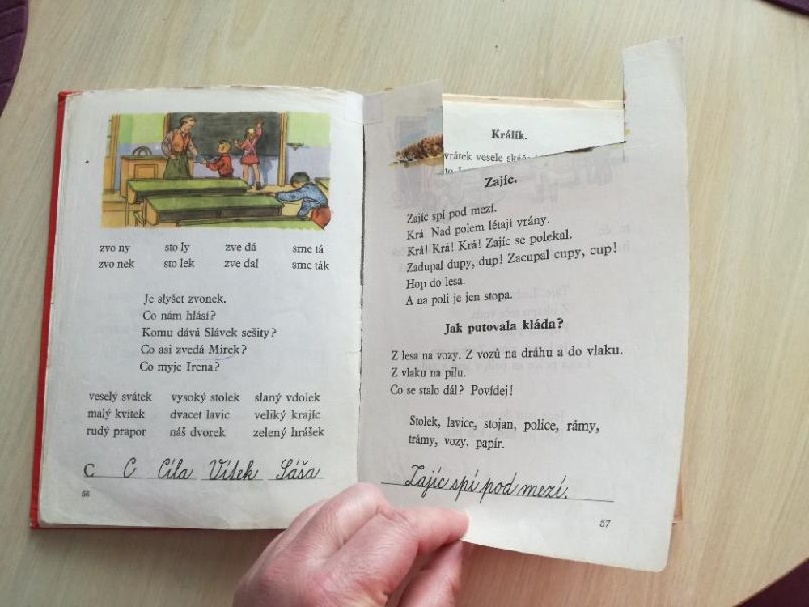 zvo ny sto ly zve dá sme tá
zvo nek sto lek zve dal sme ták
Je slyšet zvonek.
Co nám hlásí?
Komu dává Slávek sešity?
Co asi zvedá Mirek?
Co myje Irena?
veselý svátek vysoký stolek slaný vdolek
malý kvítek dvacet lavic veliký krajíc
rudý prapor náš dvorek zelený hrášek
C C Cíla Vítek Sáša
56
Králík.
vrátek vesele
Zajíc.
Zajíc spí pod mezí.
Krá Nad polem létají vrány.
Krá! Krá! Krá! Zajíc se polekal.
Zadupal dupy, dup! Zacupal cupy, cup!
Hop do lesa.
A na poli je jen stopa.
Jak putovala kláda?
Z lesa na vozy. Z vozů na dráhu a do vlaku.
Z vlaku na pilu.
Co se stalo dál? Povídej!
Stolek, lavice, stojan, police, rámy,
trámy, vozy, papír.
Zajíc spí pod mezí.
57